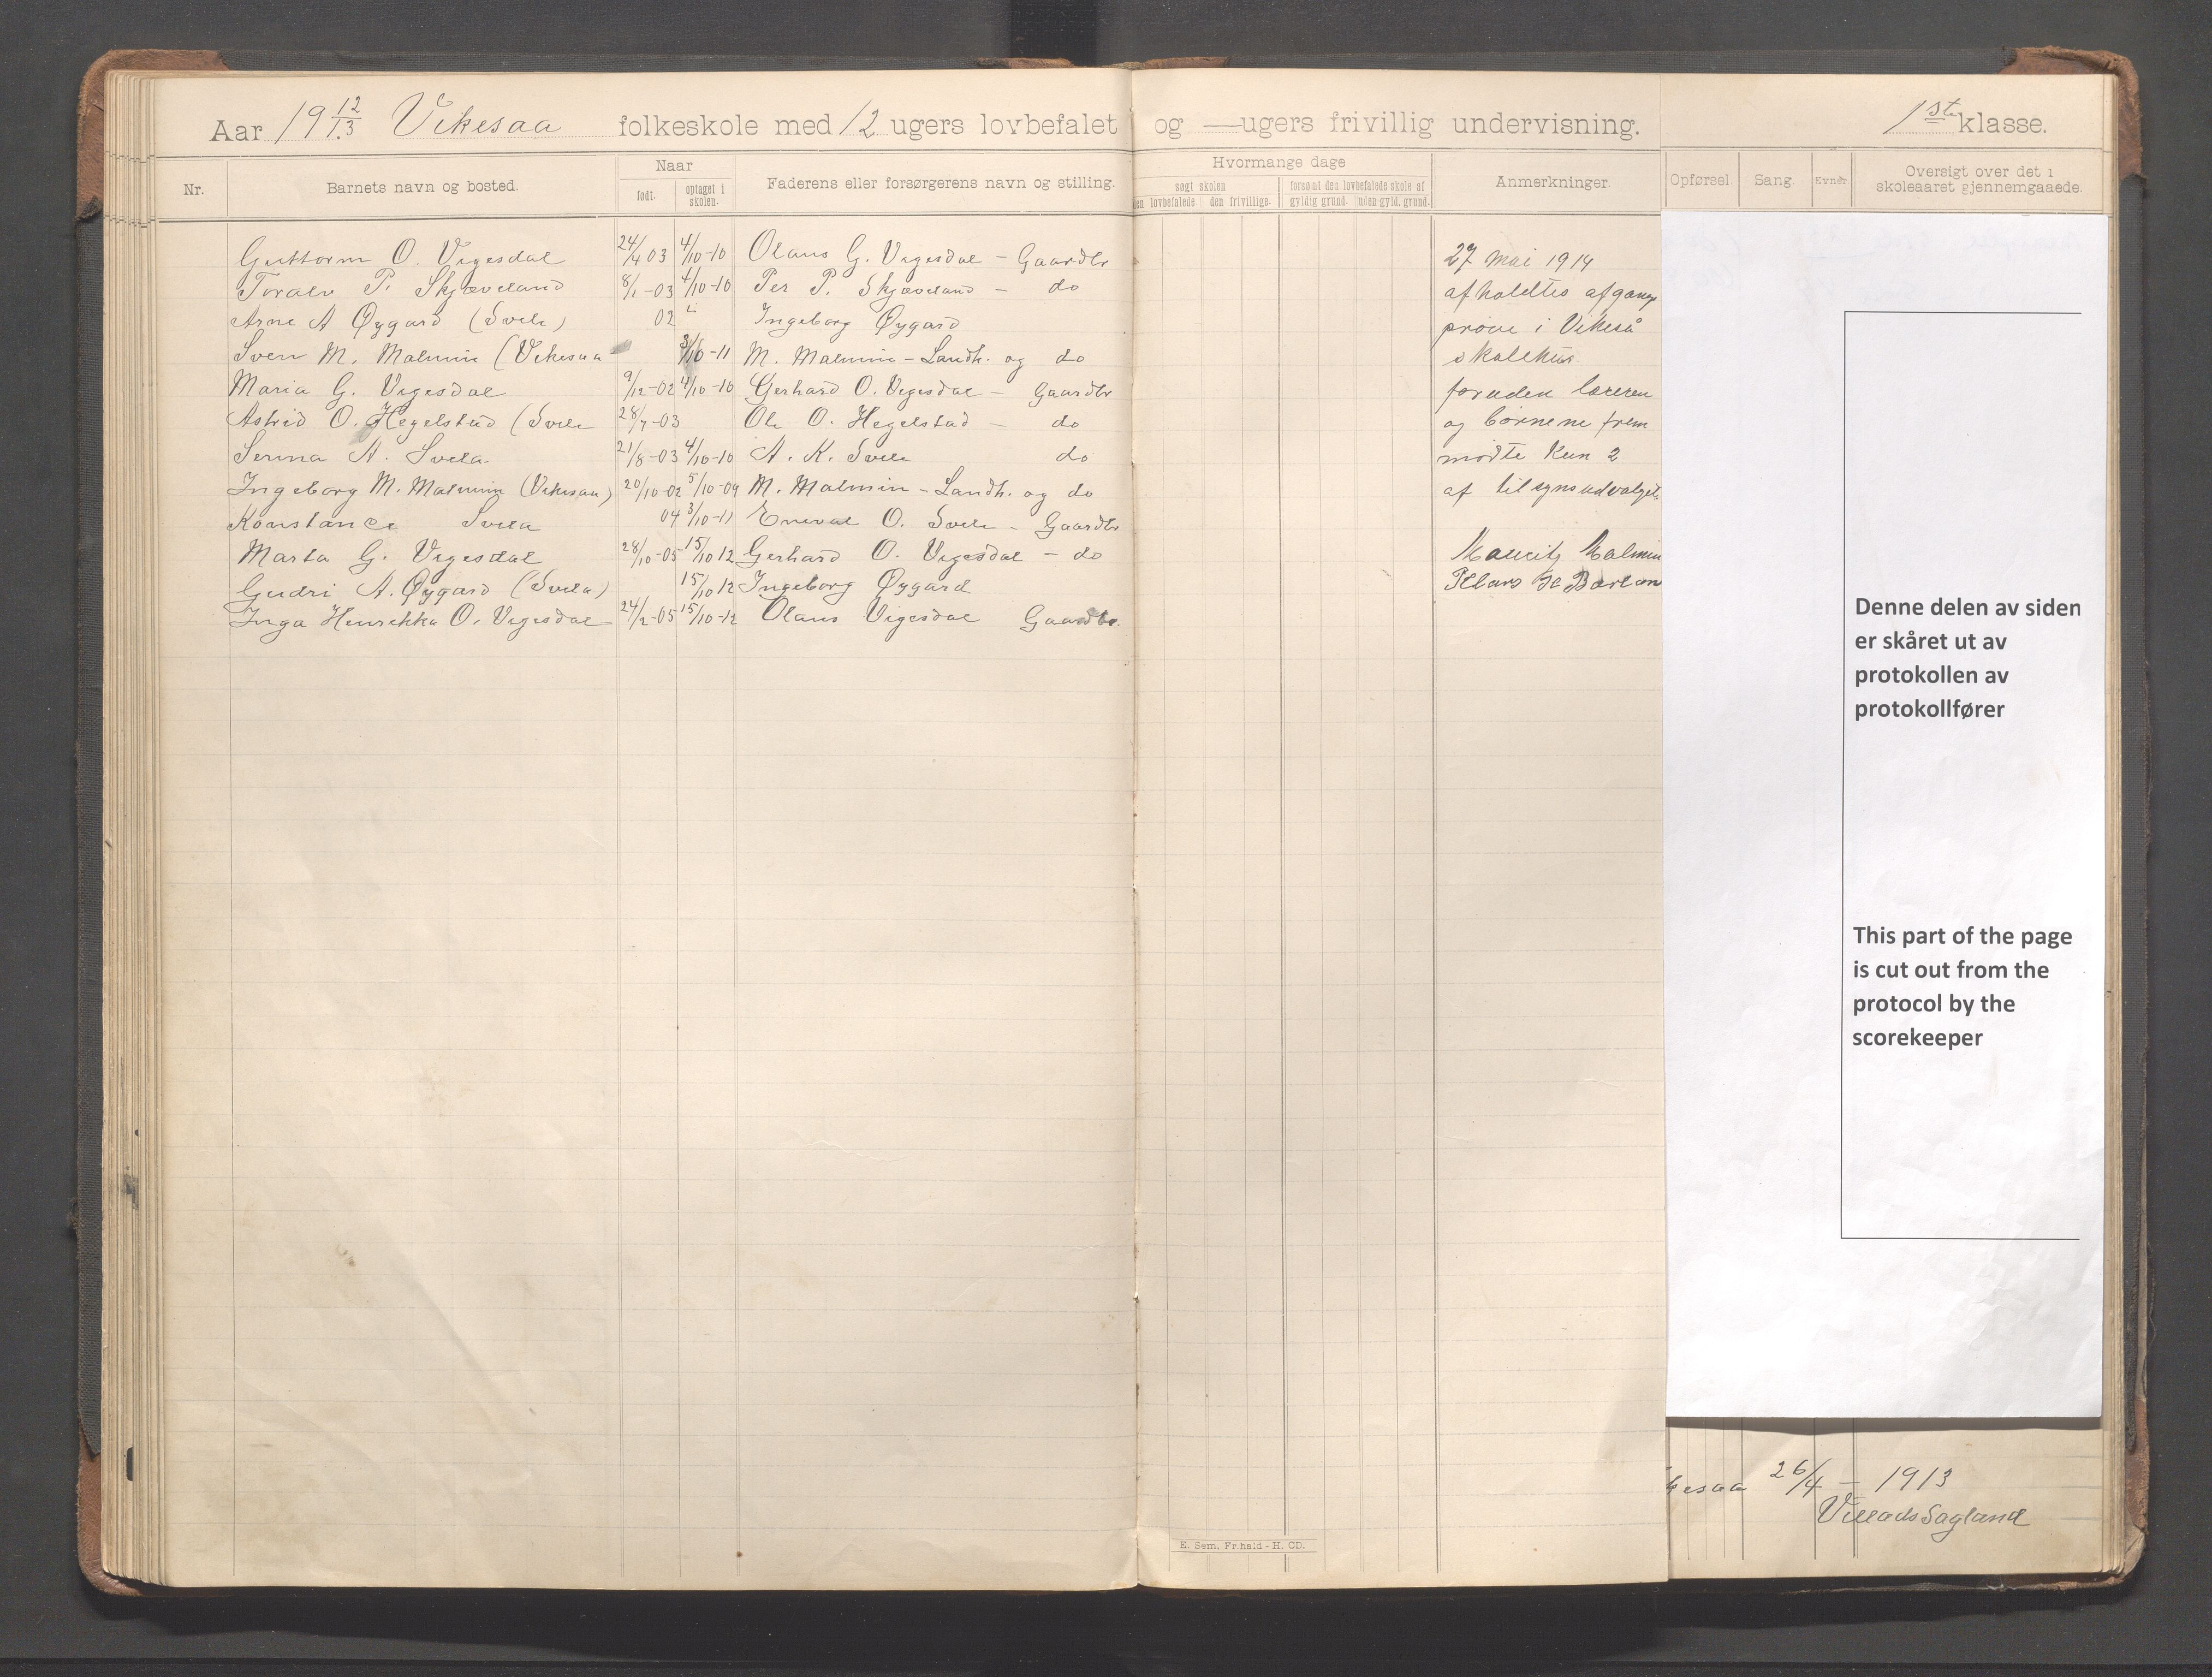 Aar 19 12/13 Vikesaa folkeskole med 12 ugers lovbefalet og — ugers frivillig undervisning. 1ste klasse.
Nr. Barnets navn og bosted. Naar født. optaget i skolen. Faderens eller forsørgerens navn og stilling. Hvormange dage søgt skolen den lovbefalede den frivillige. forsømt den lovbefalede skole af gyldig grund. uden gyld. grund. Anmerkninger. Opførsel. Sang. Evner. Oversigt over det i skoleaaret gjennemgaaede.
Guttorm O. Vegesdal 24/4 03 4/10-10 Olaus G. Vegesdal - Gaardbr
Toralv P. Skjæveland 8/1-03 4/10-10 Per P. Skjæveland - do
Arne A Øygard (Svela) 02 " Ingeborg Øygard
Sven M. Malmin (Vikesaa 3/10-11 M. Malmin - Landh. og do
Maria G. Vegesdal 9/12-02 4/10-10 Gerhard O. Vegesdal - Gaardbr
Astrid O. Hegelstad (Svela 28/7-03 Ole O. Hegelstad - do
Serina A. Svela 21/8-03 4/10-10 A. K. Svela do
Ingeborg M. Malmin (Vikesaa) 20/10-02 5/10-09 M. Malmin - Landh. og do
Konstance Svela 04 3/10-11 Eneval O. Svela - Gaardbr
Marta G. Vegesdal 28/10-05 15/10 12 Gerhard O. Vegesdal - do
Gudri A. Øygard (Svela) 15/10 12 Ingeborg Øygard
Inga Henrikka O. Vegesdal 24/2-05 15/10-12 Olaus Vegesdal Gaardbr.
27 mai 1914
afholdtes afgangs
prøve i Vikeså
skolehus.
foruden læreren
og børnene frem
mødte kun 2
af tilsynsudvalget
Mauritz Malmin
Denne delen av siden
er skåret ut av
protokollen av
protokollfører
This part of the page
is cut out from the
protocol by the
scorekeeper
kesaa 26/4 - 1913
Villads Sagland
E. Sem, Fr.hald - H. CD.